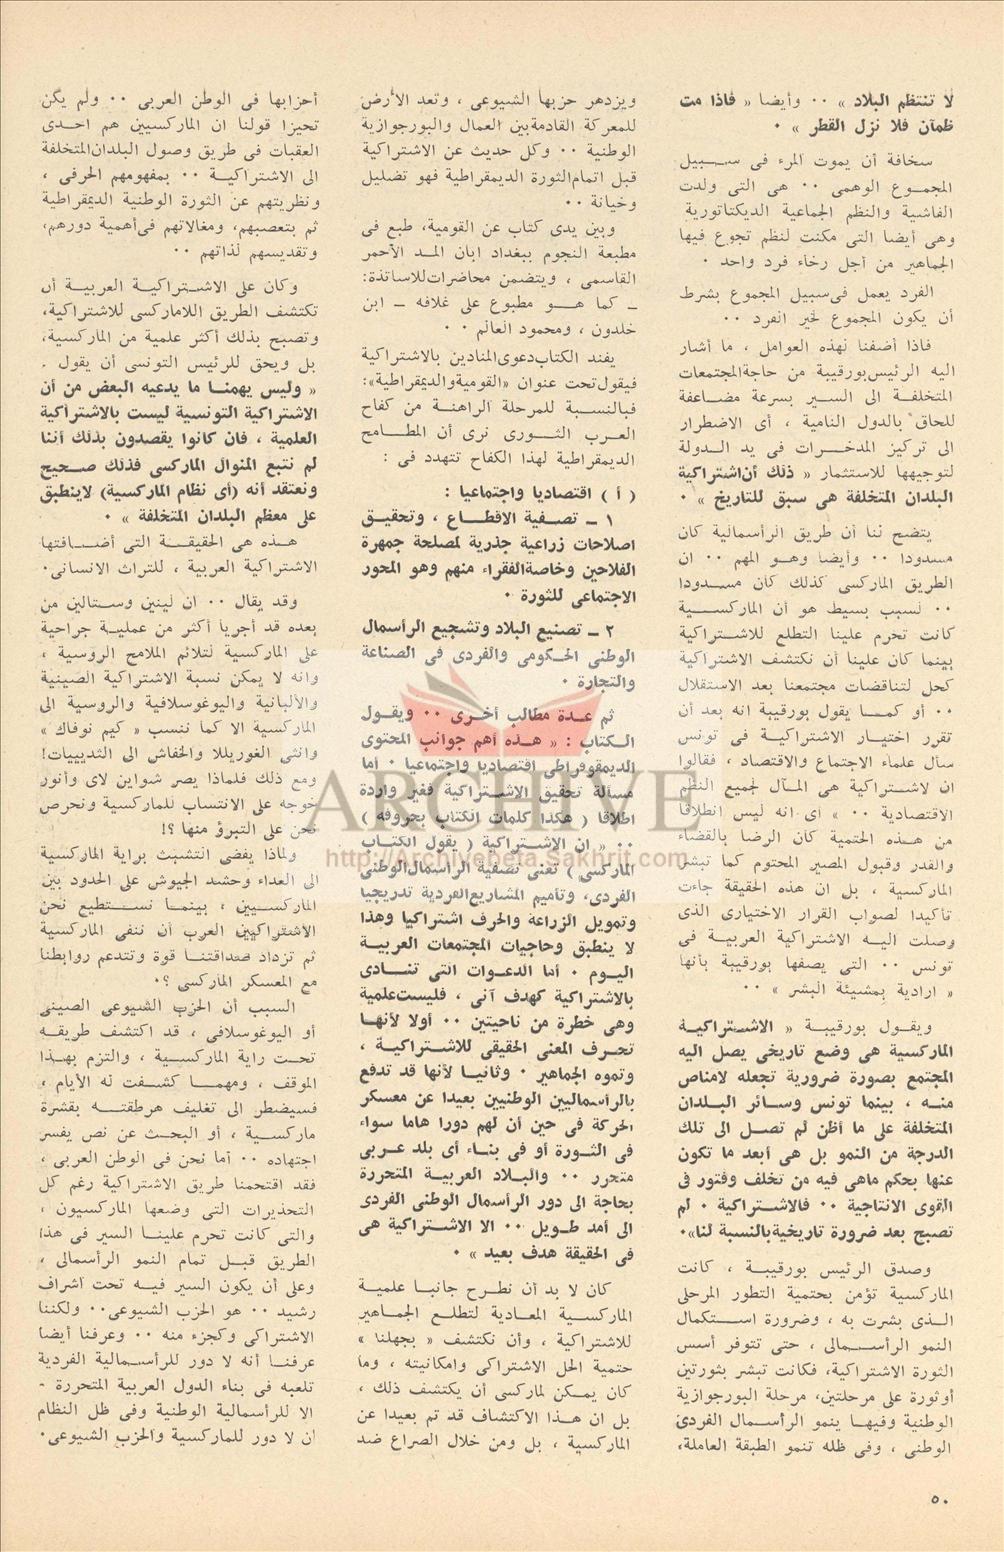 لا تنتظم البلاد » ٠٠ وأيضا « فاذا مت
ظمآن فلا نزل القطر » ٠
سخافة أن يموت المرء فى سبيل
المجموع الوهمى ٠٠ هى التى ولدت
الفاشية والنظم الجماعية الديكتاتورية
وهى أيضا التى مكنت لنظم تجوع فيها
الجماهير من أجل رخاء فرد واحد ٠
الفرد يعمل فى سبيل المجموع بشرط
أن يكون المجموع لخير الفرد ٠٠
فاذا أضفنا لهذه العوامل ، ما أشار
اليه الرئيس بورقيبة من حاجة المجتمعات
المتخلفة الى السير بسرعة مضاعفة
للحاق بالدول النامية ، أى الاضطرار
الى تركيز المدخرات فى يد الدولة
لتوجيهها للاستثمار « ذلك أن اشتراكية
البلدان المتخلفة هى سبق للتاريخ » ٠
يتضح لنا أن طريق الرأسمالية كان
مسدودا ٠٠ وأيضا وهو المهم ٠٠ ان
الطريق الماركسى كذلك كان مسدودا
٠٠ لسبب بسيط هو أن الماركسية
كانت تحرم علينا التطلع للاشتراكية
بينما كان علينا أن نكتشف الاشتراكية
كحل لتناقضات مجتمعنا بعد الاستقلال
٠٠ أو كما يقول بورقيبة انه بعد أن
تقرر اختيار الاشتراكية فى تونس
سأل علماء الاجتماع والاقتصاد ، فقالوا
ان لاشتراكية هى المآل لجميع النظم
الاقتصادية ٠٠ » أى انه ليس انطلاقا
من هذه الحتمية كان الرضا بالقضاء
والقدر وقبول المصير المحتوم كما تبشر
الماركسية ، بل ان هذه الحقيقة جاءت
تأكيدا لصواب القرار الاختيارى الذى
وصلت اليه الاشتراكية العربية فى
تونس ٠٠ التى يصفها بورقيبة بأنها
« ارادية بمشيئة البشر » ٠٠
ويقول بورقيبة « الاشتراكية
الماركسية هى وضع تاريخى يصل اليه
المجتمع بصورة ضرورية تجعله لامناص
منه ، بينما تونس وسائر البلدان
المتخلفة على ما أظن لم تصل الى تلك
الدرجة من النمو بل هى أبعد ما تكون
عنها بحكم ماهى فيه من تخلف وفتور فى
القوى الانتاجية ٠٠ فالاشتراكية ٠ لم
تصبح بعد ضرورة تاريخية بالنسبة لنا»٠
وصدق الرئيس بورقيبة ، كانت
الماركسية تؤمن بحتمية التطور المرحلى
الذى بشرت به ، وضرورة استكمال
النمو الرأسمالى ، حتى تتوفر أسس
الثورة الاشتراكية، فكانت تبشر بثورتين
أوثورة على مرحلتين، مرحلة البورجوازية
الوطنية وفيها ينمو الرأسمال الفردى
الوطنى ، وفى ظله تنمو الطبقة العاملة،
ويزدهر حزبها الشيوعى ، وتعد الأرض
للمعركة القادمة بين العمال والبورجوازية
الوطنية ٠٠ وكل حديث عن الاشتراكية
قبل اتمام الثورة الديمقراطية فهو تضليل
وخيانة ٠٠
وبين يدى كتاب عن القومية، طبع فى
مطبعة النجوم ببغداد ابان المد الأحمر
القاسمى ، ويتضمن محاضرات للاساتذة:
ـ كما هو مطبوع على غلافه ـ ابن
خلدون ، ومحمود العالم ٠٠
يفند الكتاب دعوى المنادين بالاشتراكية
فيقول تحت عنوان «القومية والديمقراطية»:
فبالنسبة للمرحلة الراهنة من كفاح
العرب الثورى نرى أن المطامح
الديمقراطية لهذا الكفاح تتهدد فى :
( أ ) اقتصاديا واجتماعيا :
١ ـ تصفية الاقطاع ، وتحقيق
اصلاحات زراعية جذرية لمصلحة جمهرة
الفلاحين وخاصة الفقراء منهم وهو المحور
الاجتماعى للثورة ٠
٢ ـ تصنيع البلاد وتشجيع الرأسمال
الوطنى الحكومى والفردى فى الصناعة
والتجارة ٠
ثم عدة مطالب أخرى ٠٠ ويقول
الكتاب : « هذه أهم جوانب المحتوى
الديمقوقراطى اقتصاديا واجتماعيا ٠ أما
مسألة تحقيق الاشتراكية فغير واردة
اطلاقا ( هكذا كلمات الكتاب بحروفه )
٠٠ « ان الاشتراكية ( يقول الكتاب
الماركسى ) تعنى تصفية الرأسمال الوطنى
الفردى، وتأميم المشاريع الفردية تدريجيا
وتمويل الزراعة والحرف اشتراكيا وهذا
لا ينطبق وحاجيات المجتمعات العربية
اليوم ٠ أما الدعوات التى تنادى
بالاشتراكية كهدف آنى ، فليست علمية
وهى خطرة من ناحيتين ٠٠ أولا لأنها
تحرف المعنى الحقيقى للاشتراكية ،
وتموه الجماهير ٠ وثانيا لأنها قد تدفع
بالرأسماليين الوطنيين بعيدا عن معسكر
الحركة فى حين أن لهم دورا هاما سواء
فى الثورة أو فى بناء أى بلد عربى
متحرر ٠٠ والبلاد العربية المتحررة
بحاجة الى دور الرأسمال الوطنى الفردى
الى أمد طويل ٠٠ الا الاشتراكية هى
فى الحقيقة هدف بعيد » ٠
كان لا بد أن نطرح جانبا علمية
الماركسية المعادية لتطلع الجماهير
للاشتراكية ، وأن نكتشف « بجهلنا »
حتمية الحل الاشتراكى وامكانيته ، وما
كان يمكن لماركسى أن يكتشف ذلك ،
بل ان هذا الاكتشاف قد تم بعيدا عن
الماركسية ، بل ومن خلال الصراع ضد
أحزابها فى الوطن العربى ٠٠ ولم يكن
تحيزا قولنا ان الماركسيين هم احدى
العقبات فى طريق وصول البلدان المتخلفة
الى الاشتراكية ٠٠ بمفهومهم الحرفى ،
ونظريتهم عن الثورة الوطنية الديمقراطية
ثم بتعصبهم، ومغالاتهم فى أهمية دورهم،
وتقديسهم لذاتهم ٠٠
وكان على الاشتراكية العربية أن
تكتشف الطريق اللاماركسى للاشتراكية،
وتصبح بذلك أكثر علمية من الماركسية،
بل ويحق للرئيس التونسى أن يقول .
« وليس يهمنا ما يدعيه البعض من أن
الاشتراكية التونسية ليست بالاشتراكية
العلمية ، فان كانوا يقصدون بذلك أننا
لم نتبع المنوال الماركسى فذلك صحيح
ونعتقد أنه (أى نظام الماركسية) لاينطبق
على معظم البلدان المتخلفة » ٠
هذه هى الحقيقة التى أضافتها
الاشتراكية العربية ، للتراث الانسانى٠
وقد يقال ٠٠ ان لينين وستالين من
بعده قد أجريا أكثر من عملية جراحية
على الماركسية لتلائم الملامح الروسية ،
وانه لا يمكن نسبة الاشتراكية الصينية
والألبانية واليوغوسلافية والروسية الى
الماركسية الا كما ننسب « كيم نوفاك »
وانثى الغوريللا والخفاش الى الثدييات!
ومع ذلك فلماذا يصر شواين لاى وأنور
خوجه على الانتساب للماركسية ونحرص
نحن على التبرؤ منها ؟!
ولماذا يفضى التشبث براية الماركسية
الى العداء وحشد الجيوش على الحدود بين
الماركسيين ، بينما نستطيع نحن
الاشتراكيين العرب أن ننفى الماركسية
ثم تزداد صداقتنا قوة وتتدعم روابطنا
مع المعسكر الماركسى ؟٠
السبب أن الحزب الشيوعى الصينى
أو اليوغوسلافى ، قد اكتشف طريقه
تحت راية الماركسية ، والتزم بهذا
الموقف ، ومهما كشفت له الأيام ،
فسيضطر الى تغليف هرطقته بقشرة
ماركسية ، أو البحث عن نص يفسر
اجتهاده ٠٠ أما نحن فى الوطن العربى ،
فقد اقتحمنا طريق الاشتراكية رغم كل
التحذيرات التى وضعها الماركسيون ،
والتى كانت تحرم علينا السير فى هذا
الطريق قبل تمام النمو الرأسمالى ،
وعلى أن يكون السير فيه تحت اشراف
رشيد ٠٠ هو الحزب الشيوعى٠٠ ولكننا
الاشتراكى وكجزء منه ٠٠ وعرفنا أيضا
عرفنا أنه لا دور للرأسمالية الفردية
تلعبه فى بناء الدول العربية المتحررة ـ
الا للرأسمالية الوطنية وفى ظل النظام
ان لا دور للماركسية والحزب الشيوعى٠
٥٠
ARCHIVE
http://Archivebeta.Sakhrit.com